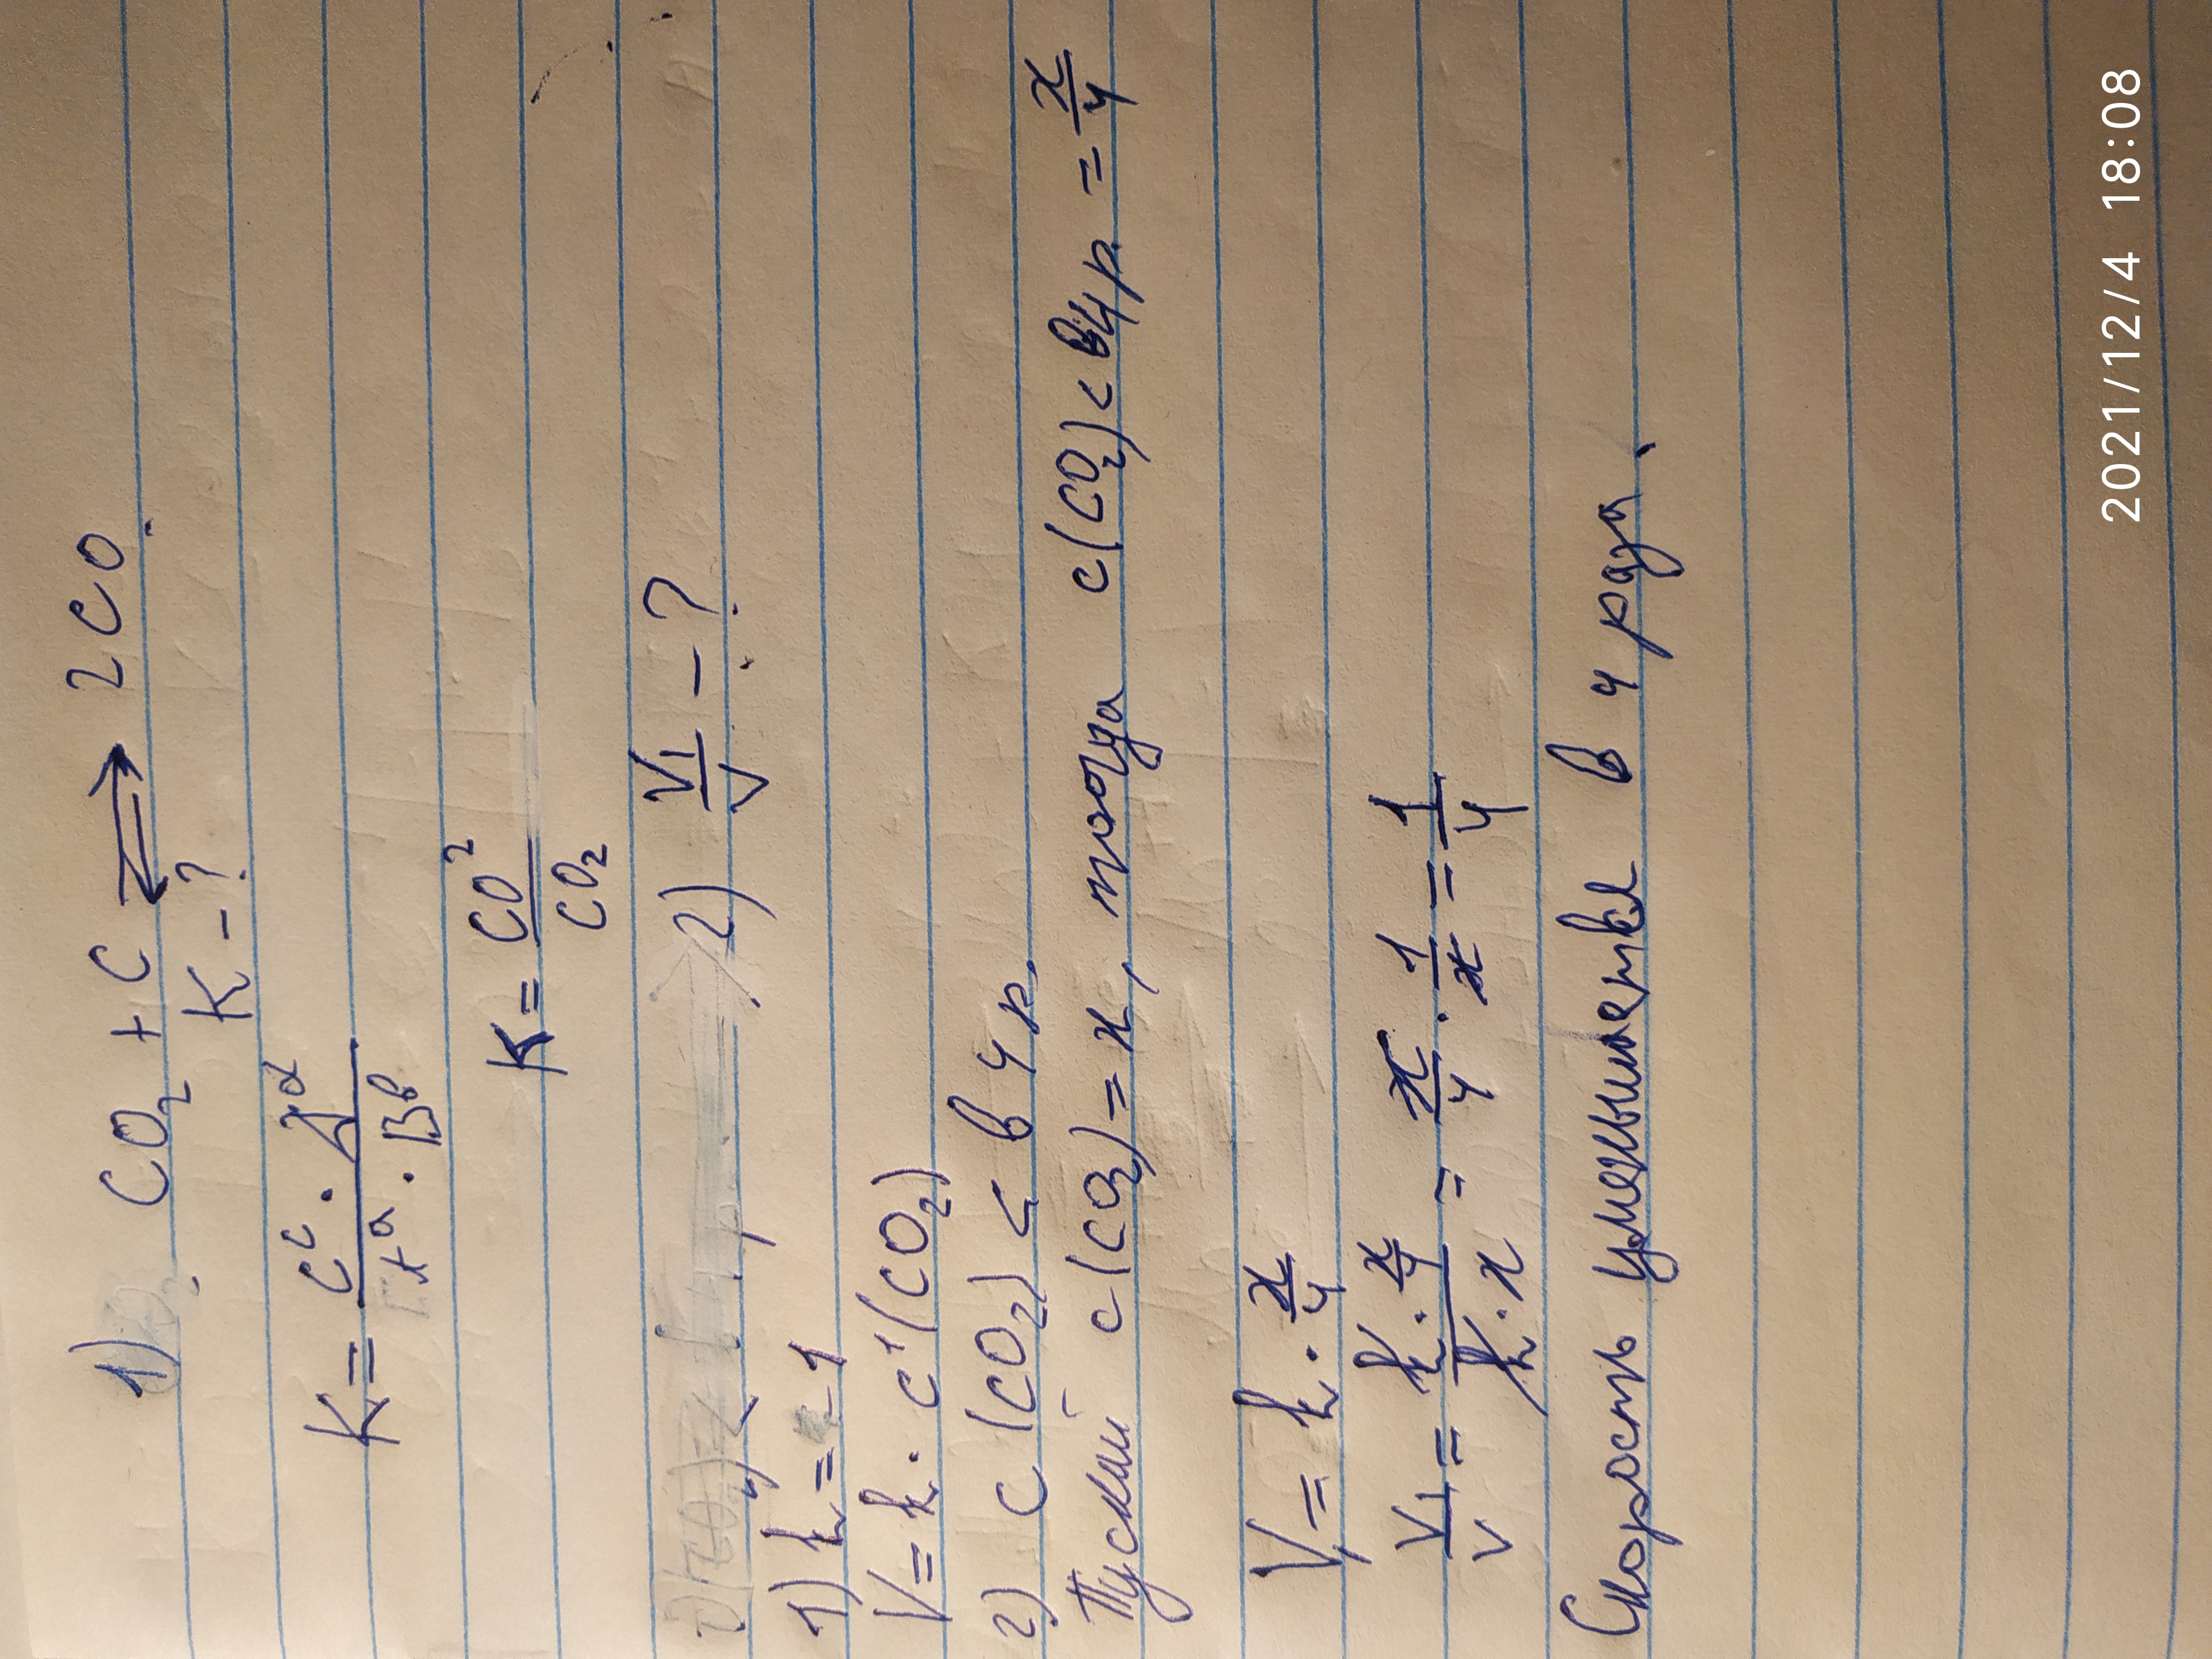 1) CO₂ + C ⇌ 2CO.
K - ?
K = Cᶜ · Дᵈ / Aᵃ · Bᵇ
K = CO² / CO₂
2) V₁/V - ?
1) h = 1
V = k · c¹(CO₂)
2) C(CO₂) < в 4 р.
Пускай c(CO₂) = x, тогда c(CO₂) < в 4 р. = x/4
V₁ = k · x/4
V₁/V = k · x/4 / k · x = x/4 · 1/x = 1/4
Скорость уменьшиетвя в 4 раза.
2021/12/4 18:08